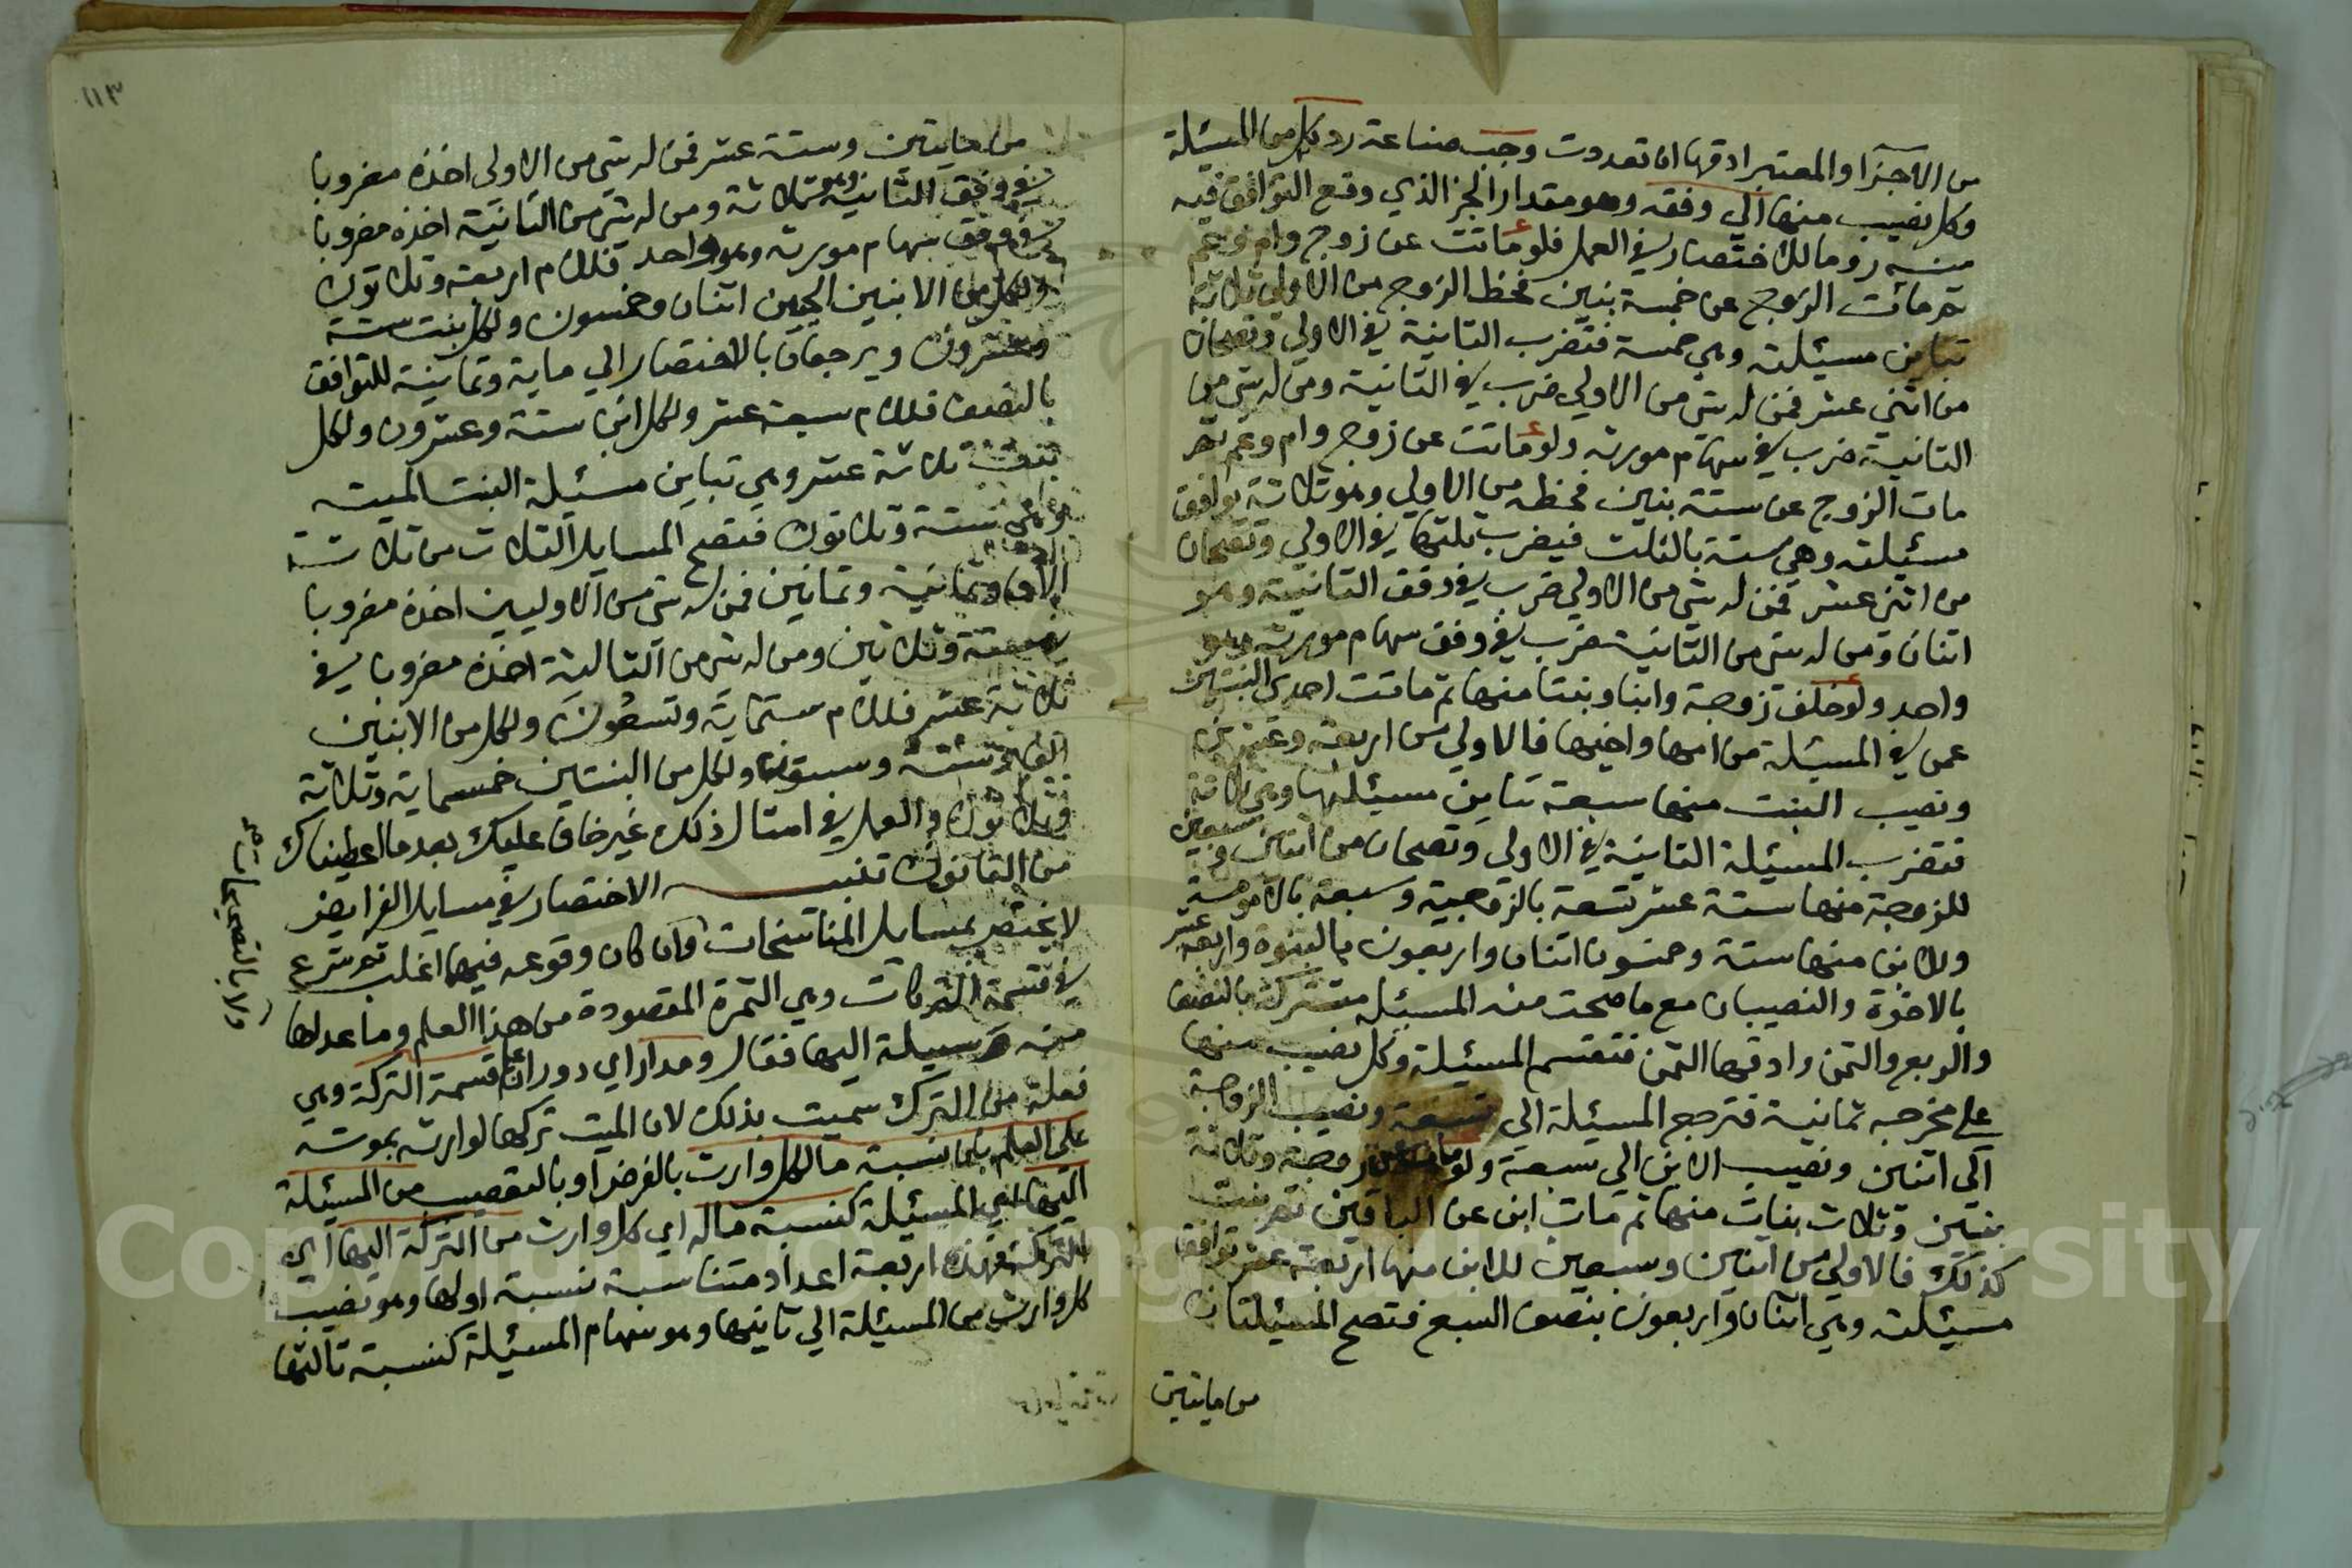 من الاجزا والمعتبر ادقها ان تعددت وجب صناعة رد كل من المسئلة
وكل نصيب منها الي وفقه وهو مقدار الجز الذي وقع التوافق فيه
للاختصار في العمل فلو ماتت عن زوج وام وعم
ثم مات الزوج عن خمسة بنين فحظ الزوج من الاولي ثلاثة
تباين مسئلته وهي خمسة فتضرب الثانية في الاولي وتصحان
من اثنى عشر فمن له شي من الاولي ضرب في الثانية ومن له شي من
الثانية ضرب في سهام مورثه ولو ماتت عن زوج وام وعم ثم
مات الزوج عن ستة بنين فحظه من الاولي وهو ثلاثة يوافق
مسئلته وهي ستة بالثلث فيضرب ثلثها في الاولي وتصحان
من اثني عشر فمن له شي من الاولي ضرب في وفق الثانية وهو
اثنان ومن له شي من الثانية ضرب في وفق سهام مورثه وهو
واحد ولو خلف زوجة وابنا وبنتا منها ثم ماتت احدي البنتين
عمن في المسئلة من امها واخيها فالاولي من اربعة وعشرين
ونصيب البنت منها سبعة تباين مسئلتها وهي ثلاثة
فتضرب المسئلة الثانية في الاولي وتصحان من اثنين وسبعين
للزوجة منها ستة عشر تسعة بالزوجية وسبعة بالامومة
وللابن منها ستة وخمسون اثنان واربعون بالبنوة واربعة عشر
بالاخوة والنصيبان مع ما صحت منه المسئلة مشتركة بالنصف
والربع والثمن وادقها الثمن فتقسم المسئلة وكل نصيب منها
علي مخرجه ثمانية فترجع المسئلة الي تسعة ونصيب الزوجة
الي اثنين ونصيب الابن الي سبعة ولو مات عن زوجة وثلاثة
بنين وثلاث بنات منها ثم مات ابن عن الباقين ثم بنت
كذلك فالاولي من اثنين وسبعين للابن منها اربعة عشر توافق
مسئلته وهي اثنان واربعون بنصف السبع فتصح المسئلتان
من مايتين
١١٣
من مايتين وستة عشر فمن له شي من الاولي اخذه مضروبا
في وفق الثانية وهو ثلاثة ومن له شي من الثانية اخذه مضروبا
في وفق سهام مورثه وهو واحد فللام اربعة وثلاثون
ولكل من الابنين الحيين اثنان وخمسون ولكل بنت ستة
وعشرون ويرجعان بالاختصار الي ماية وثمانية للتوافق
بالنصف فللام سبعة عشر ولكل ابن ستة وعشرون ولكل
بنت ثلاثة عشر وهي تباين مسئلة البنت الميتة
وهي ستة وثلاثون فتصح المسايل الثلاث من ثلاثة
الاف وثمانية وثمانين فمن له شي من الاوليين اخذه مضروبا
في ستة وثلاثين ومن له شي من الثالثة اخذه مضروبا في
ثلاثة عشر فللام ستماية وتسعون ولكل من الابنين
الف وستة وسبعون ولكل من البنتين خمسماية وثلاثة
وثلاثون والعمل في امثال ذلك غير خاف عليك بعد ما اعطيناك
من القانون تنبيه الاختصار في مسايل الفرايض
لا يختص بمسايل المناسخات وان كان وقوعه فيها اغلب ثم شرع
في قسمة التركات وهي الثمرة المقصودة من هذا العلم وما عداها
منه وسيلة اليها فقال ومدار اي دوران علم قسمة التركة وهي
فعلة من الترك سميت بذلك لان الميت تركها لوارثه بموته
على العلم بان نسبة ما لكل وارث بالفرض او بالتعصيب من المسئلة
اليها اي المسئلة كنسبة ماله اي كل وارث من التركة اليها اي
التركة فهذه اربعة اعداد متناسبة نسبة اولها وهو نصيب
كل وارث من المسئلة الي ثانيها وهو سهام المسئلة كنسبة ثالثها
ولا بالتصحيحات صح
Copyright © King Saud University